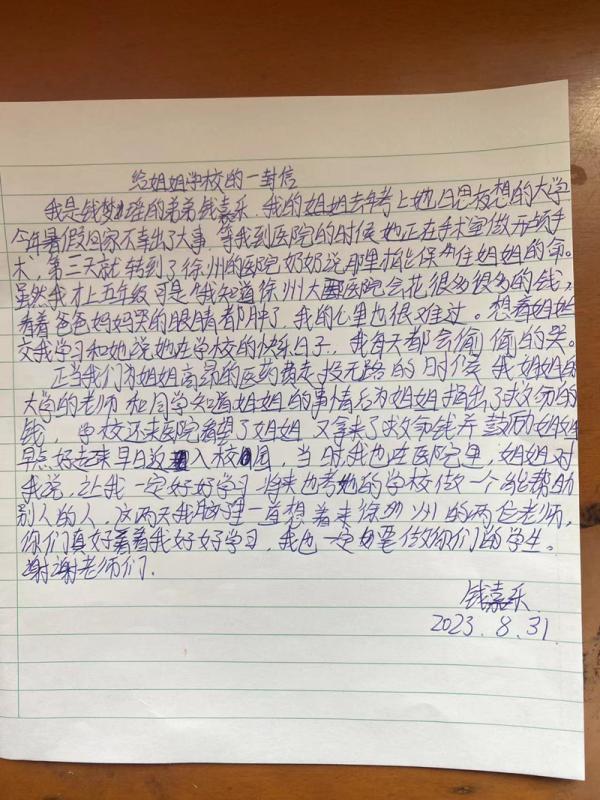 给姐姐学校的一封信
我是钱梦瑶的弟弟钱嘉乐.我的姐姐去年考上她日思夜想的大学
今年暑假回家不幸出了大事,等我到医院的时候她正在手术室做开颅手
术,第三天就转到了徐州的医院奶奶说那里才能保住姐姐的命。
虽然我才上五年级可是我知道徐州大医院会花很多很多的钱,
看着爸爸妈妈哭的眼睛都肿了,我的心里也很难过。想着姐姐
交我学习和她说她在学校的快乐日子,我每天都会偷偷的哭。
正当我们为姐姐高昂的医药费走投无路的时候 我姐姐的
大学的老师和同学知道姐姐的事情后为姐姐捐出了救命的
钱,学校还来医院看望了姐姐 又拿来了救命钱并鼓励姐姐
早点好起来早日返入校园,当时我也在医院里,姐姐对
我说,让我一定好好学习 将来也考她的学校做一个能帮助
别人的人,这两天我脑子里一直想着来徐州的两位老师,
你们真好看着我好好学习,我也一定要做你们的学生。
谢谢老师们.
钱嘉乐
2023.8.31